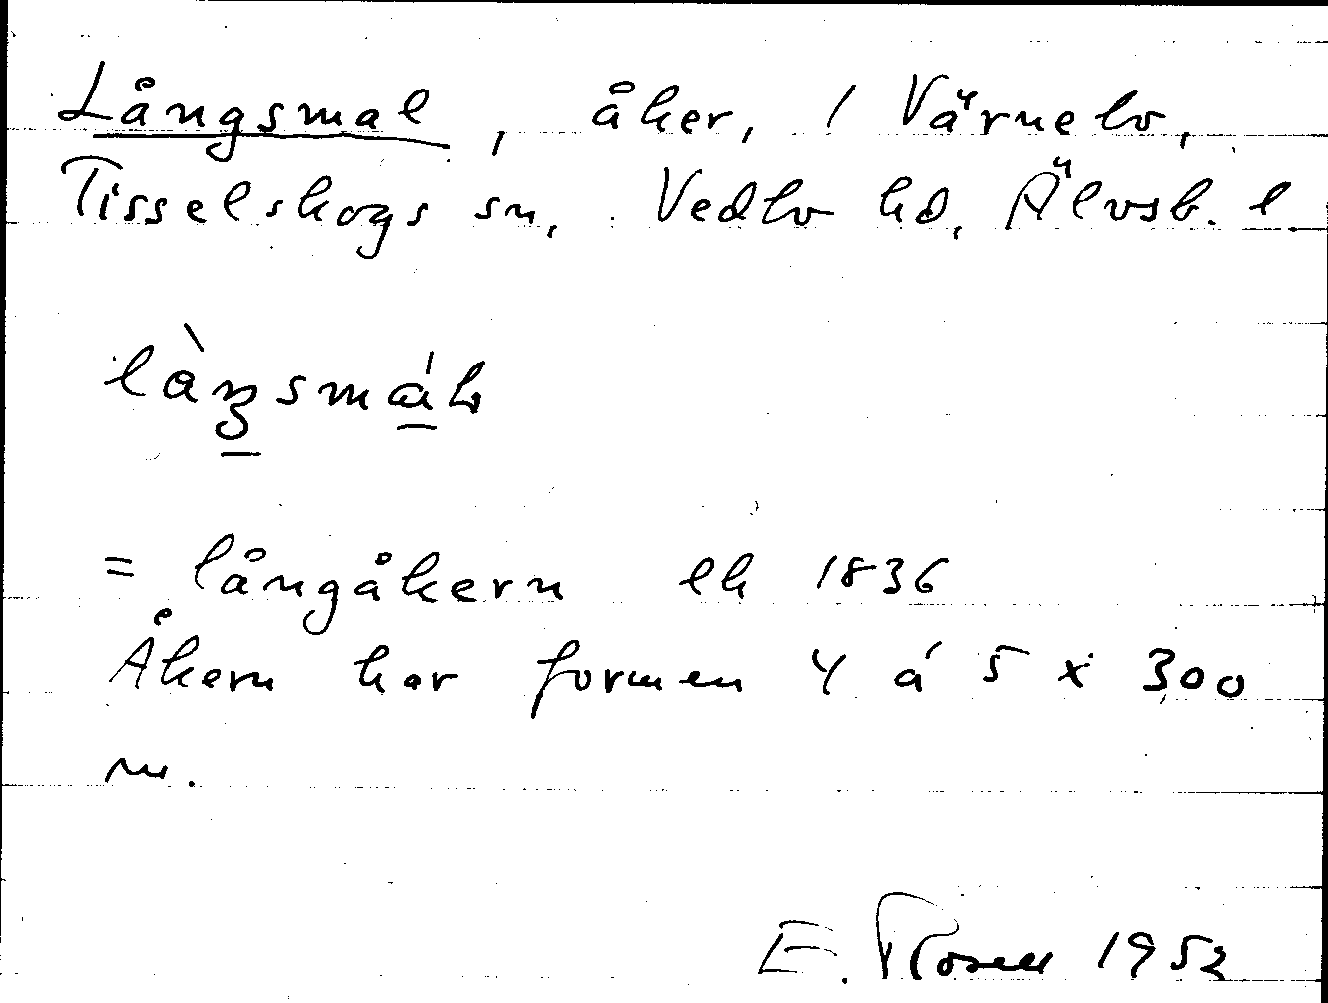 Långsmal, åker, 1 Värnebo,
Tisselskogs sn, Vedbo hd, Älvsb. l.
= långåkern ek 1836
Åkern har formen 4 á 5 x 300
m.
E. Rosell 1952